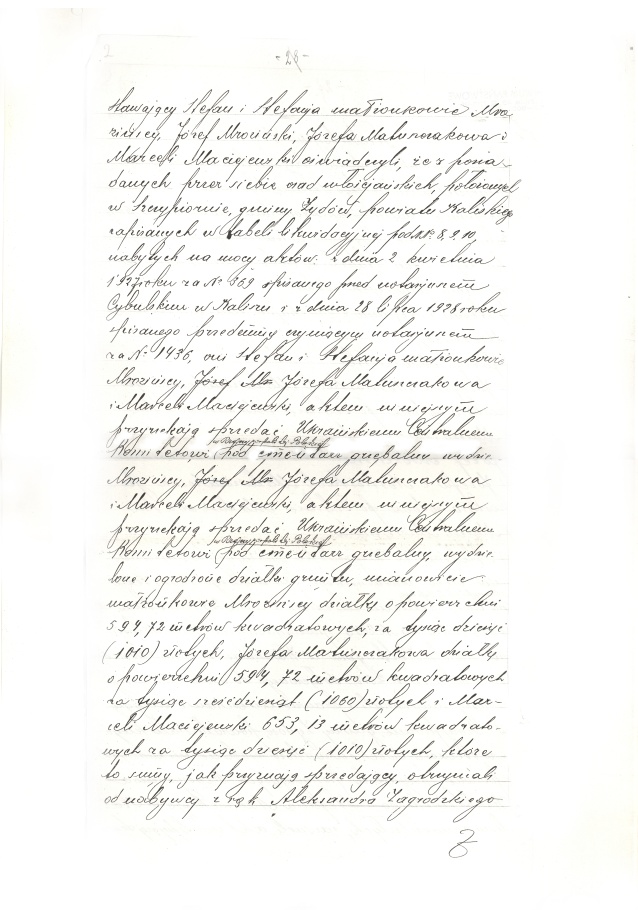 2
- 28 -
Stawający Stefan i Stefanja małżonkowie Mro-
zińscy, Józef Mroziński, Józefa Matuszczakowa i
Marceli Maciejewski oświadczyli, że z posia-
danych przez siebie osad włościańskich, położonych
w Szczypiornie, gminy Żydów, powiatu Kaliskiego
zapisanych w tabeli likwidacyjnej pod №№ 8, 9, 10,
nabytych na mocy aktów: z dnia 2 kwietnia
1927 roku za № 569 spisanego przed notarjuszem
Cybulskim w Kaliszu i z dnia 28 lipca 1928 roku
spisanego przedemną czyniącym notarjuszem
za № 1436, oni Stefan i Stefanja małżonkowie
Mrozińscy, Józef Mr Józefa Matuszczakowa
i Marceli Maciejewski, aktem niniejszym
przyrzekają sprzedać Ukraińskiemu Centralnemu
w Rzeczypospolitej Polskiej
Komitetowi pod cmentarz grzebalny wydzie
Mrozińscy, Józef Mr Józefa Matuszczakowa
i Marceli Maciejewski, aktem niniejszym
przyrzekają sprzedać Ukraińskiemu Centralnemu
w Rzeczypospolitej Polskiej
Komitetowi pod cmentarz grzebalny, wydzie-
lone i ogrodzone działki gruntu, mianowicie:
małżonkowie Mrozińscy działkę o powierzchni
594,72 metrów kwadratowych, za tysiąc dziesięć
(1010) złotych, Józefa Matuszczakowa działkę
o powierzchni 594,72 metrów kwadratowych
za tysiąc sześćdziesiąt (1060) złotych i Mar-
celi Maciejewski 653,13 metrów kwadrato-
wych za tysiąc dziesięć (1010) złotych, które
to sumy, jak przyznają sprzedający, otrzymali
od nabywcy z rąk Aleksandra Zagrodzkiego